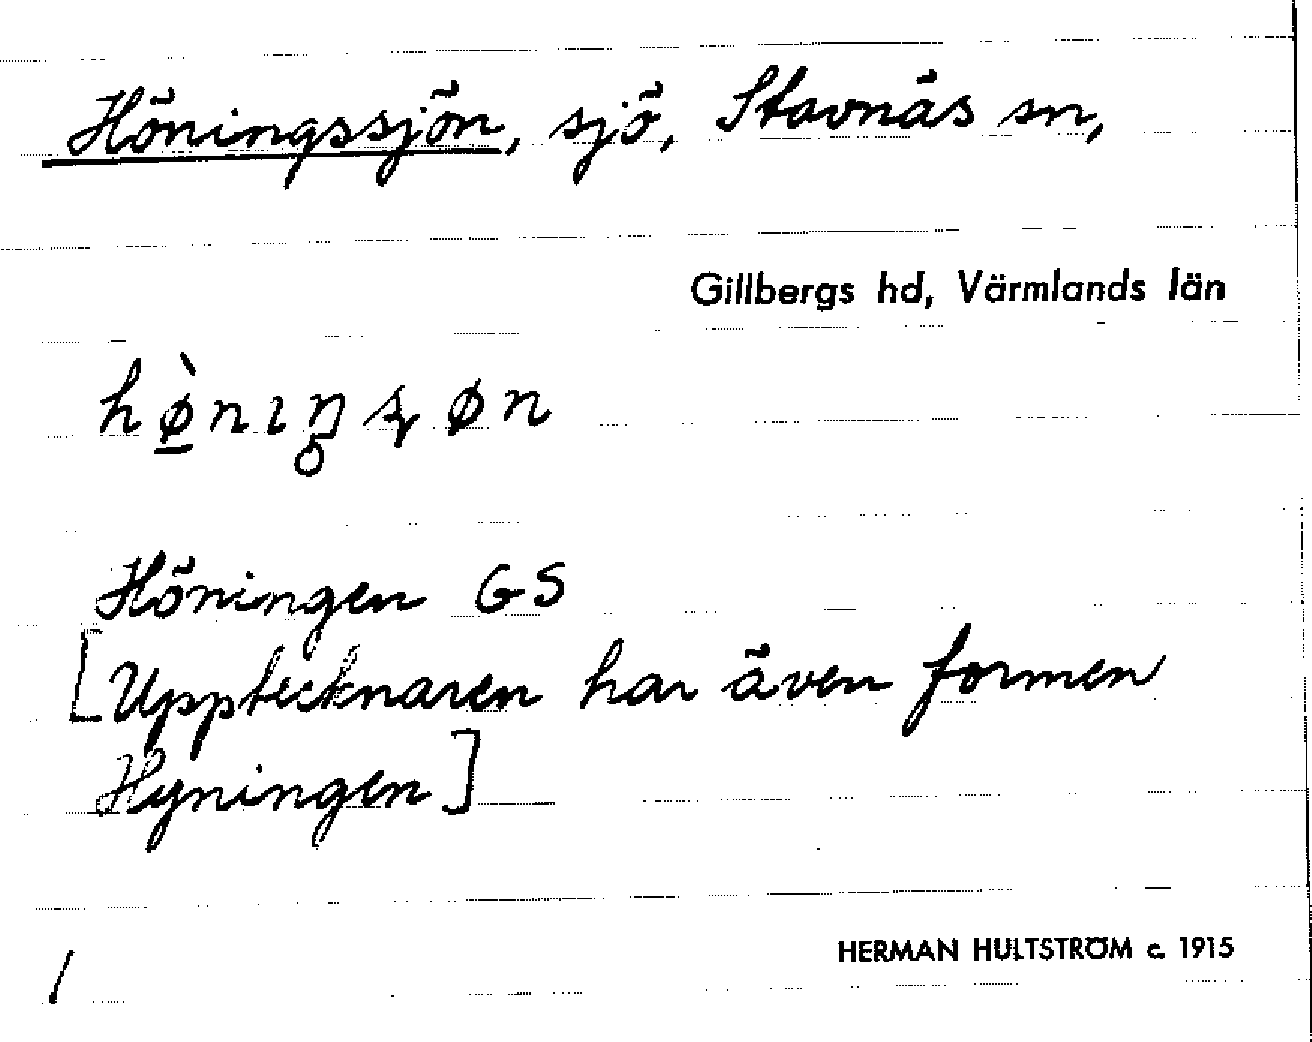 Höningssjön, sjö, Stavnäs sn,
Gillbergs hd, Värmlands län
hø̠̀nıŋ̥ʂøn
Höningen GS
[Upptecknaren har även formen
Hyningen]
HERMAN HULTSTRÖM c. 1915
/